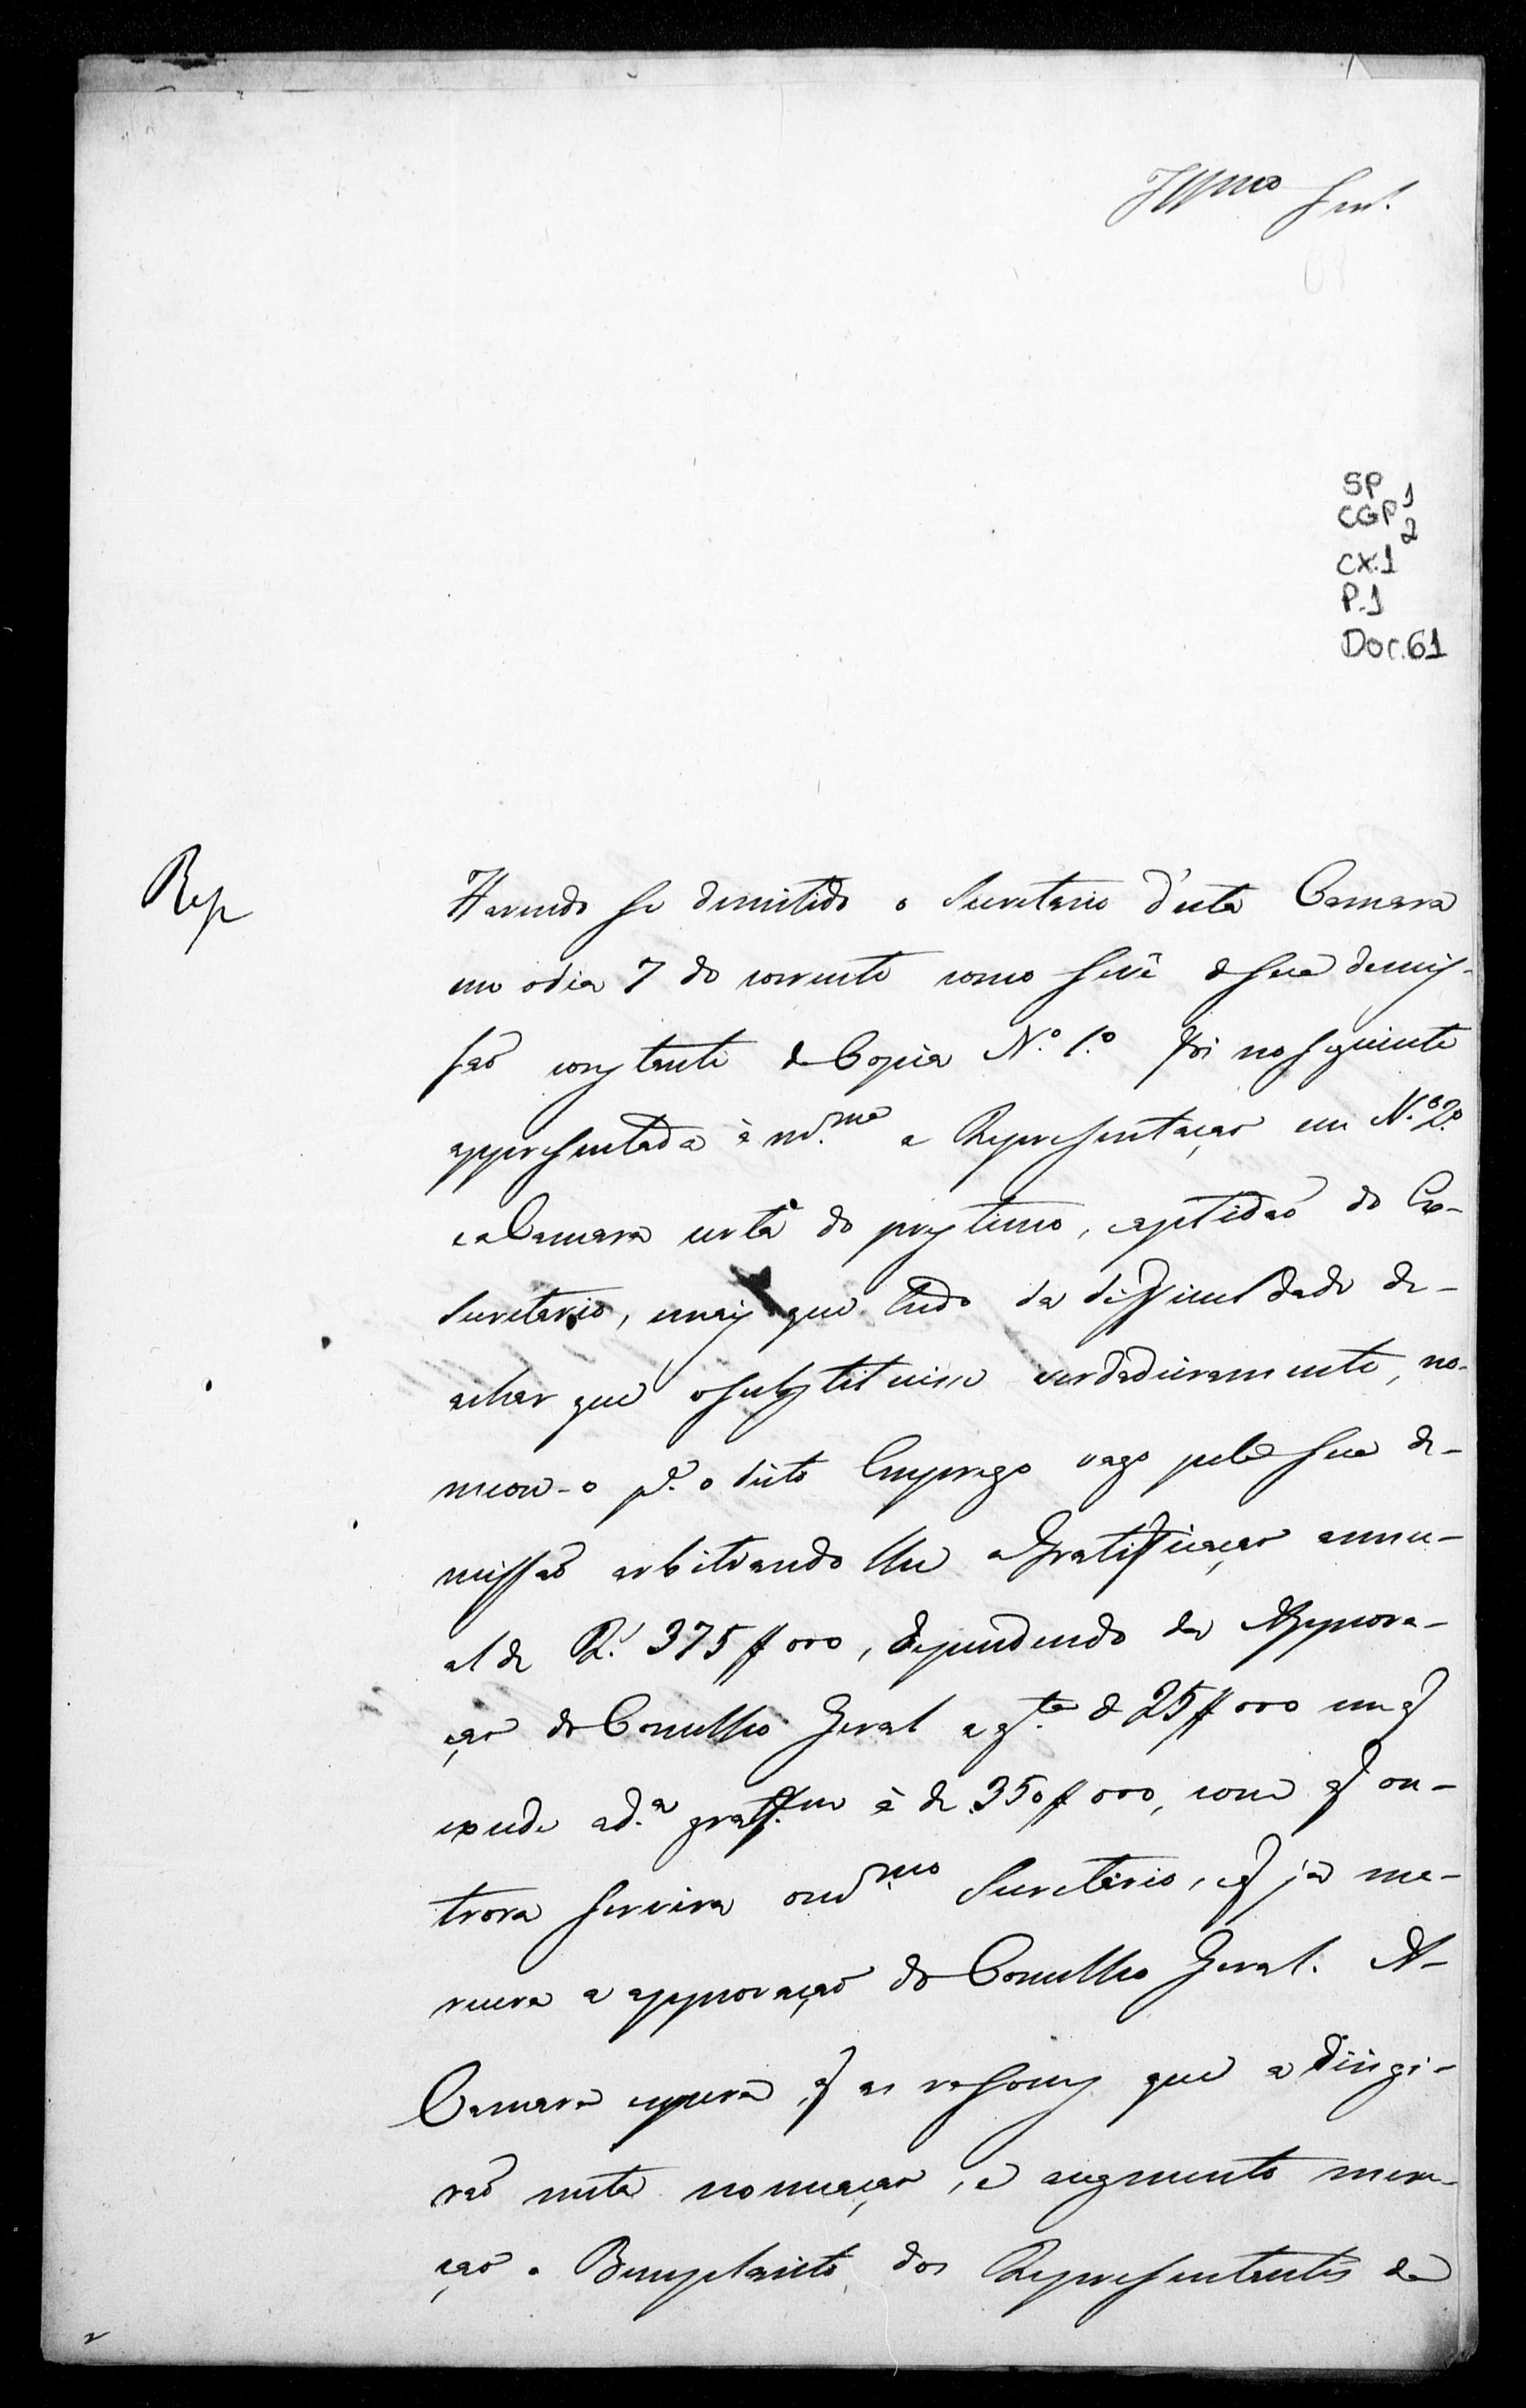 Illmo Snr.
SP 1
CGP 2
CX.1
P.1
Doc.61
Rep
Havendo se demitido o Secretario d'esta Camara
em odia 7 do corrente como se vê de sua demis-
são constante da Copia N.º 1.º foi no seguinte
appresentada à m.ma a Representação em N.º 2.º
ea Camara certa do prestimo, eaptidaõ do Ex-
Secretario, emais que tudo da difficuldade de-
achar que osubstituisse verdadeiramente, no-
meou-o p.ª o dito Emprego vago pela sua de-
missaõ arbitrando lhe aGratificaçaõ annu-
al de R.s 375$000, dependendo da Approva-
çaõ do Conselho Geral a q.ta de 25$000 em q
excede a d.ª gratif.am à de 350$000, com q ou-
trora servira om.mo Secretario, eq já me-
recera a approvaçaõ do Conselho Geral. A-
Camara espera, q as rasoens que a dirigi-
raõ nesta nomeaçaõ, e augmento mere-
çaõ o Beneplacito dos Representantes da